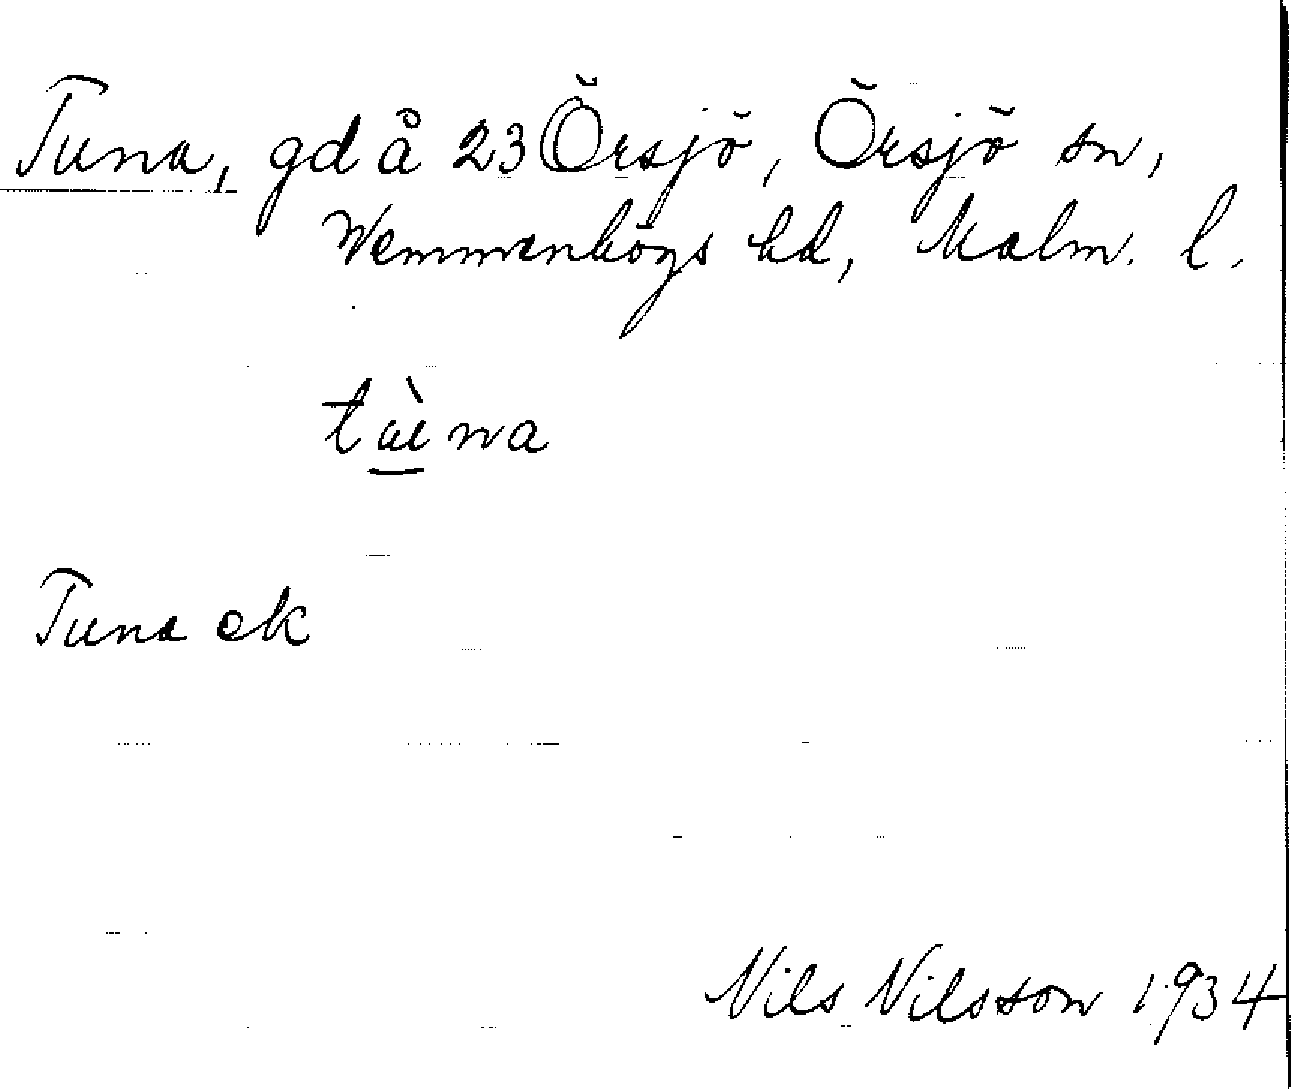 Tuna, gd å 23 Örsjö, Örsjö sn,
Wemmenhögs hd, Malm. l.
tùna
Tuna ek
Nils Nilsson 1934